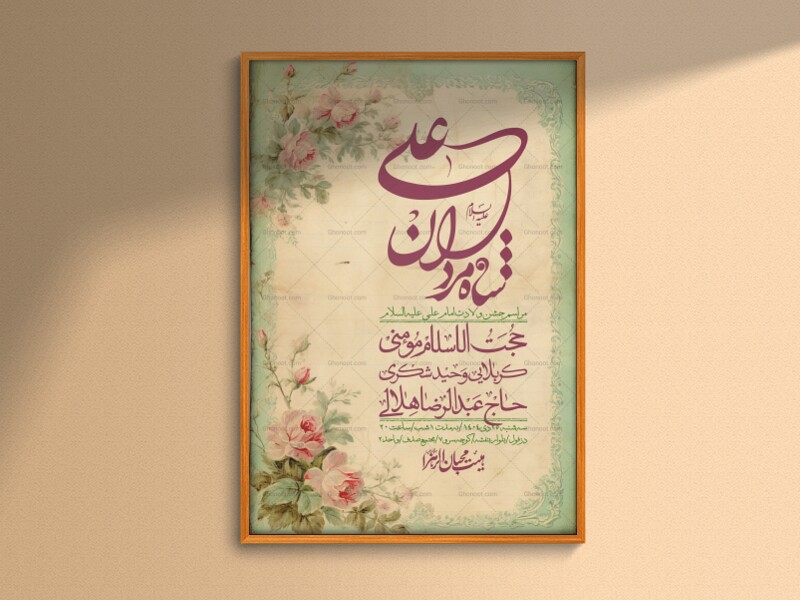 علی
علیه السلام
شاه مردان
مراسم جشن ولادت امام علی علیه السلام
حجت الاسلام مومنی
کربلایی وحید شکری
حاج عبدالرضا هلالی
سه شنبه
دزفول/
هیئت محبان الزهرا
Ghonoot.com